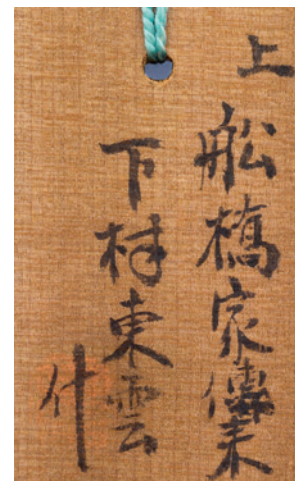 上
船橋家傳来
下村東雲
什